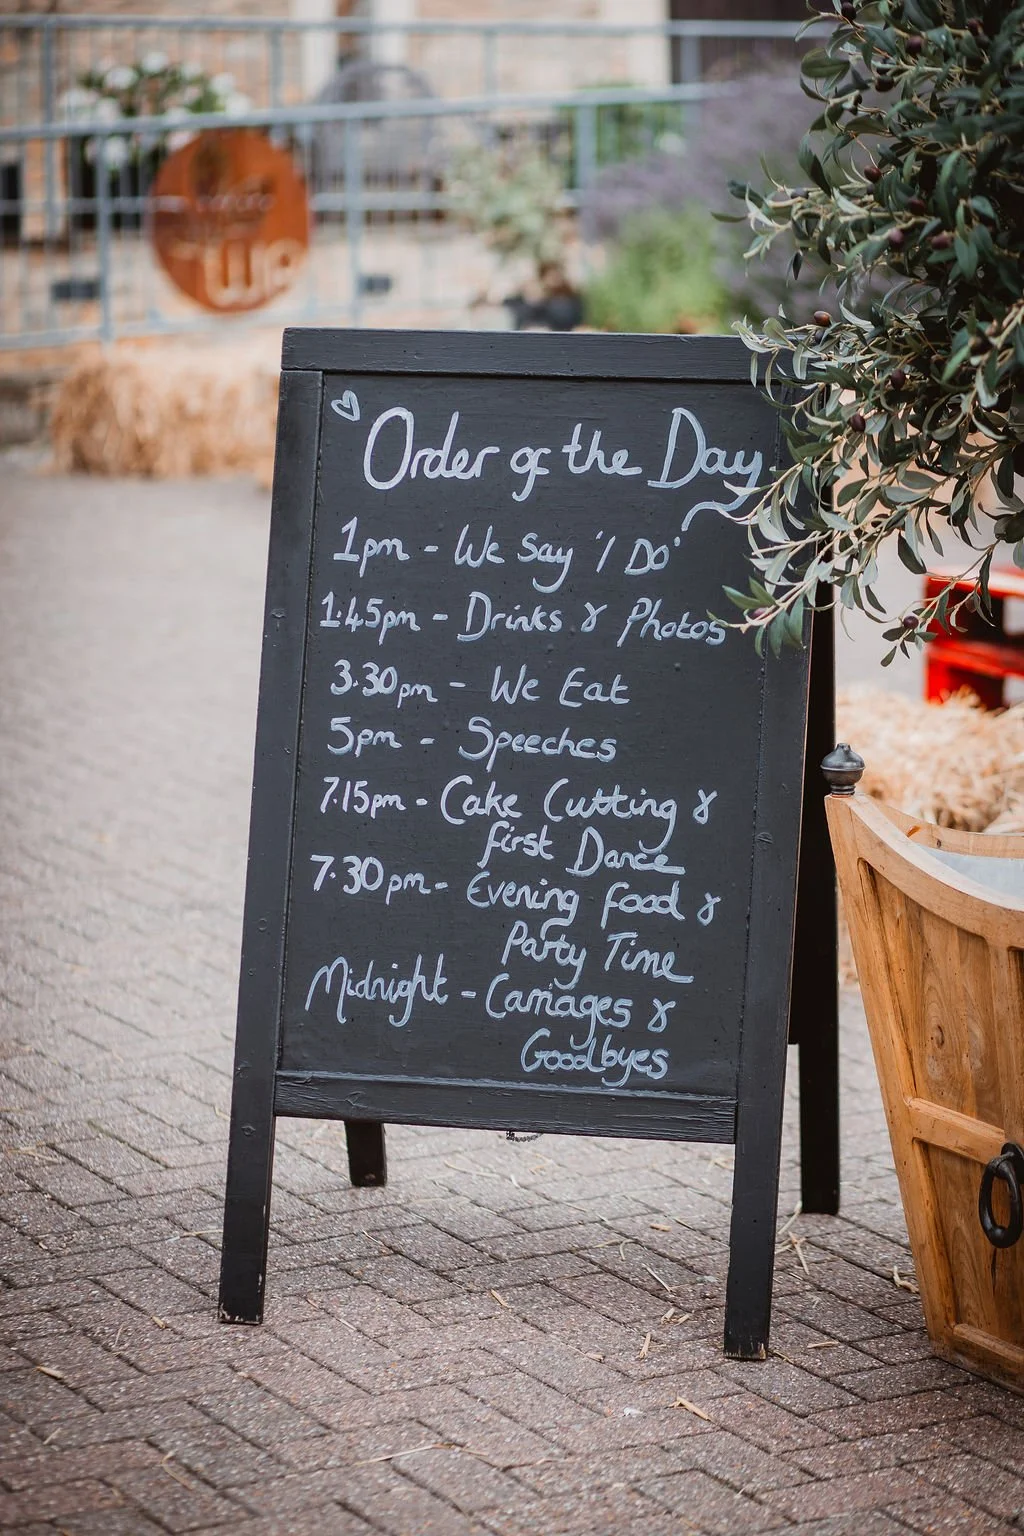 Order of the Day
1pm - We Say 'I Do'
1.45pm - Drinks & Photos
3.30pm - We Eat
5pm - Speeches
7.15pm - Cake Cutting &
First Dance
7.30pm - Evening Food &
Party Time
Midnight - Carriages &
Goodbyes